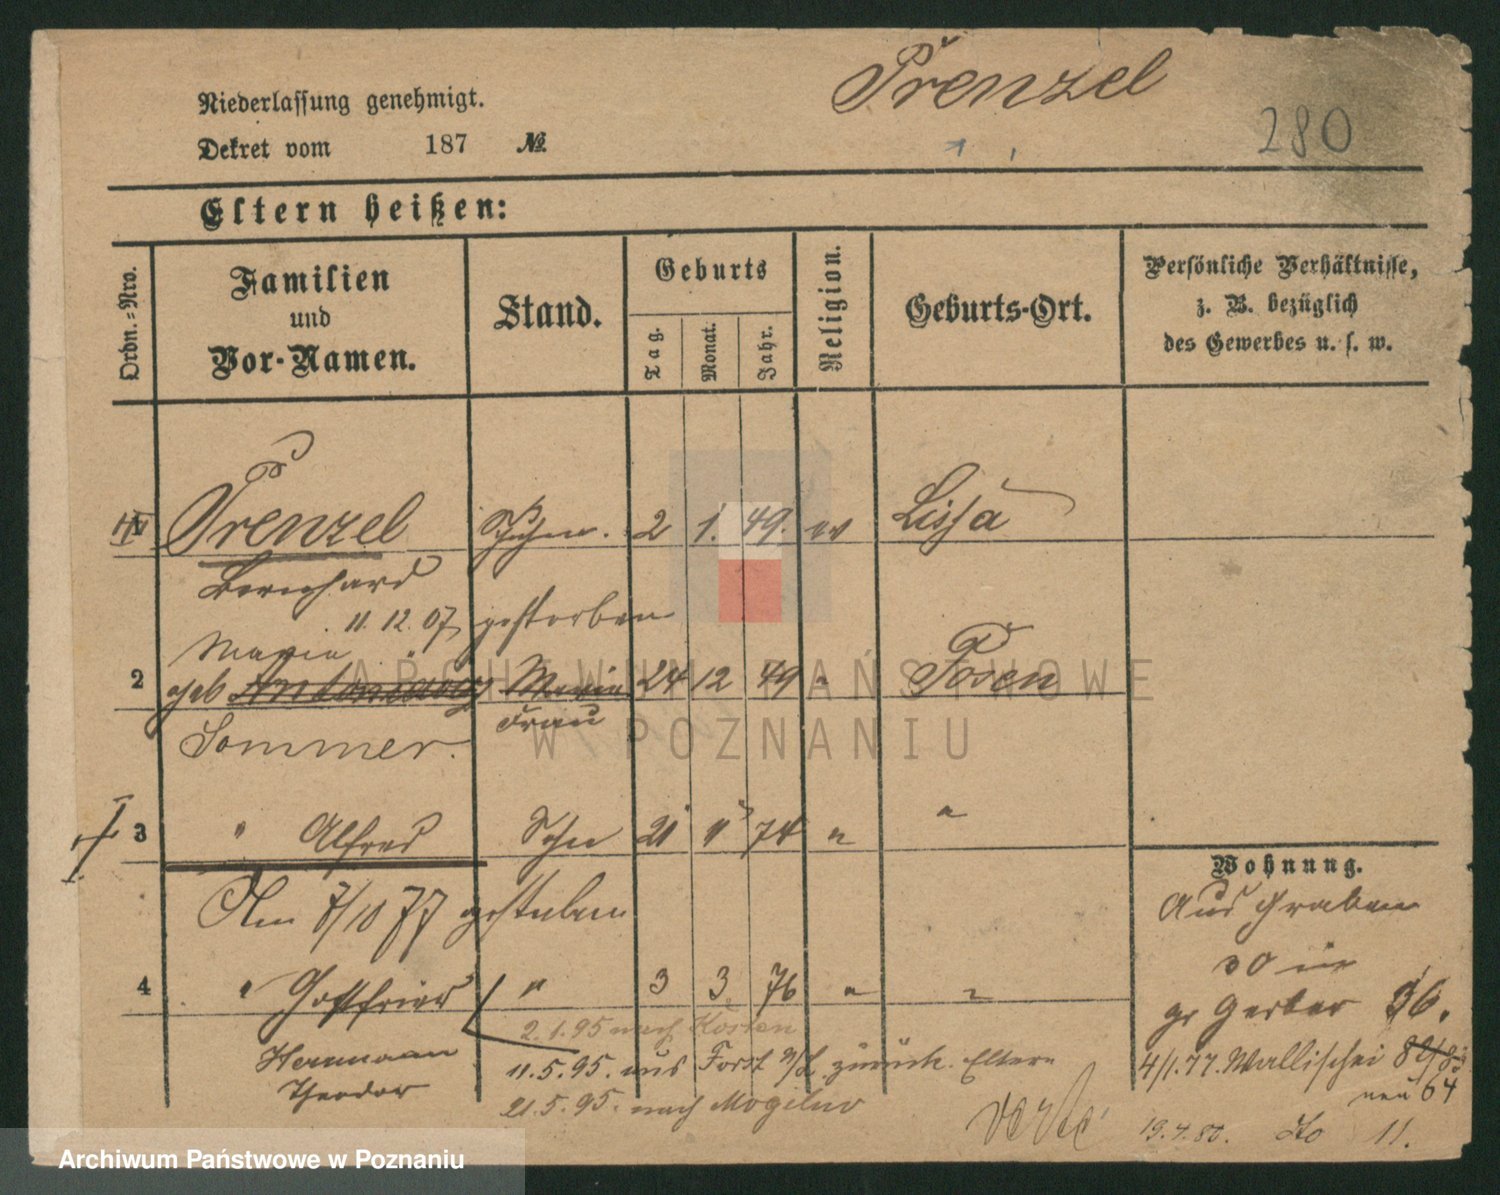 Prenzel
Niederlassung genehmigt.
280
Dekret vom 187 №
Eltern heißen:
Ordn.-Nro.
Familien und Vor-Namen.
Stand.
Geburts
Tag.
Monat.
Jahr.
Religion.
Geburts-Ort.
Persönliche Verhältnisse,
z. B. bezüglich
des Gewerbes u. s. w.
Prenzel 2 1. 49. Lissa
Bernhard
11. 12. 07 gestorben
Maria
2 geb Maria 24 12 49 " Posen
Sommer. Frau
3 " Alfred Sohn 21 11 74 " "
Wohnung.
Am 7/10 77 gestorben
Graben
30
4 " Gottfried " 3 3 76 " "
gr Gerber 36.
2.1.95 nach Kosten
Herrmann
11.5.95. aus Forst n/L zurück. Eltern
4/1.77. Wallischei
neu 64
Theodor
21.5.95. nach Mogilno
verte
19.4.80. 11.
ARCHIWUM PAŃSTWOWE
W POZNANIU
Archiwum Państwowe w Poznaniu